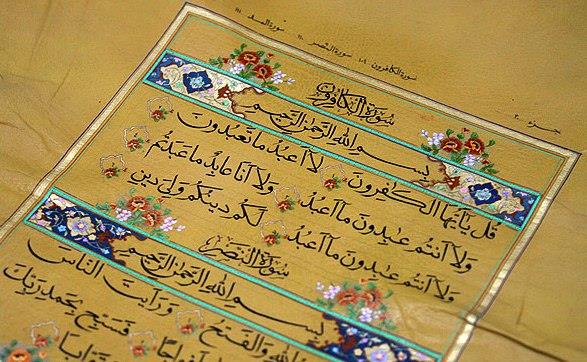 جزء ٣٠
سورة الكافرون سورة النصر ١١٠ سورة المسد ١١١
سُورَةُ الْكَافِرُونَ
بِسْمِ اللهِ الرَّحْمٰنِ الرَّحِيمِ
قُلْ يَٰٓأَيُّهَا الْكَٰفِرُونَ لَآ أَعْبُدُ مَا تَعْبُدُونَ
وَلَآ أَنتُمْ عَٰبِدُونَ مَآ أَعْبُدُ وَلَآ أَنَا۠ عَابِدٌ مَّا عَبَدتُّمْ
وَلَآ أَنتُمْ عَٰبِدُونَ مَآ أَعْبُدُ لَكُمْ دِينُكُمْ وَلِيَ دِينِ
سُورَةُ النَّصْرِ
بِسْمِ اللهِ الرَّحْمٰنِ الرَّحِيمِ
اللهِ وَالْفَتْحُ وَرَأَيْتَ النَّاسَ
اللهِ أَفْوَاجًا فَسَبِّحْ بِحَمْدِ رَبِّكَ